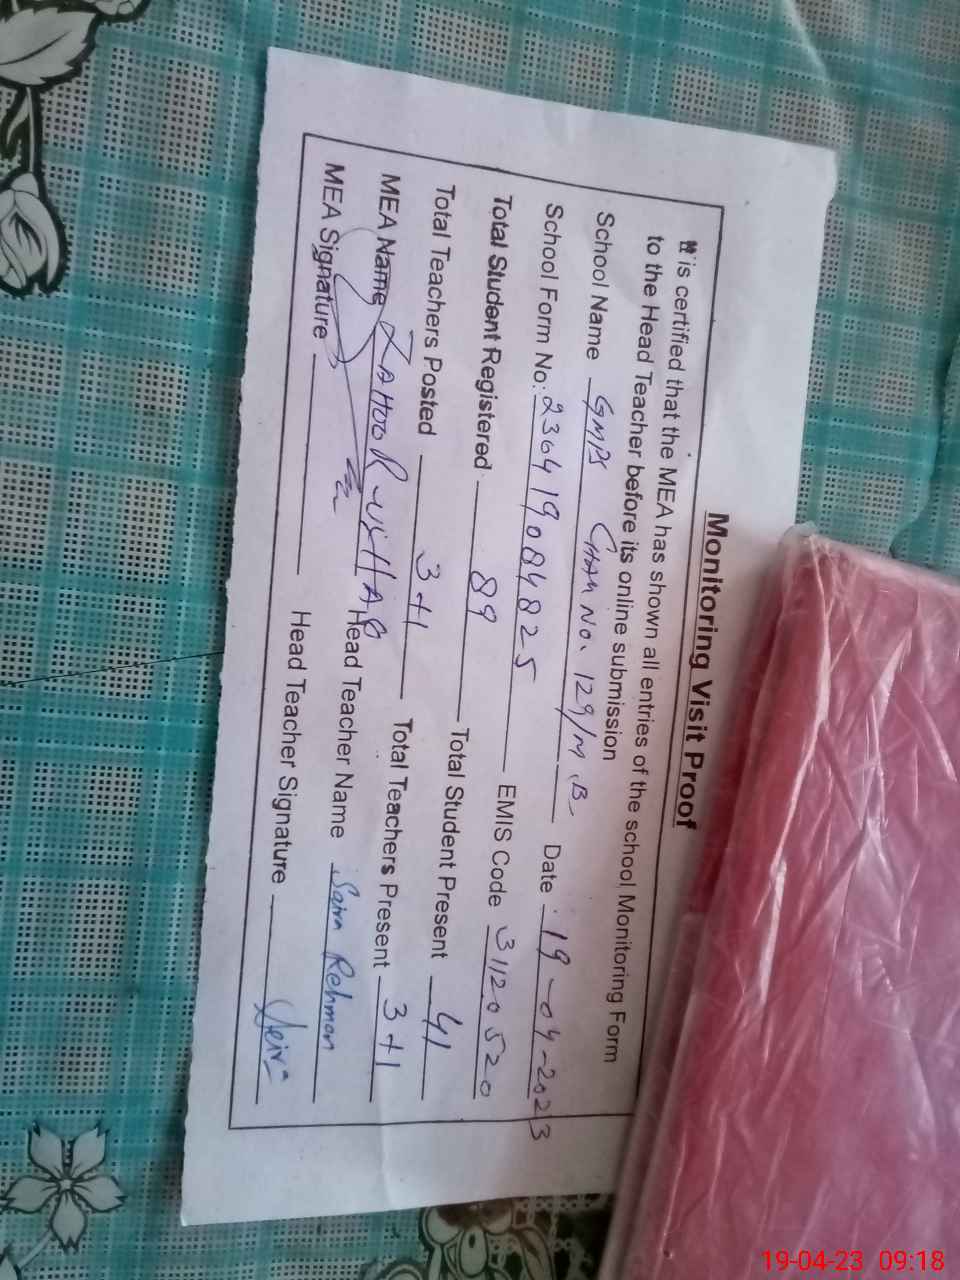 Monitoring Visit Proof
It is certified that the MEA has shown all entries of the school Monitoring Form
to the Head Teacher before its online submission
School Name GMPS Chak No. 129/M B Date 19-04-2023
School Form No: 230419084825 EMIS Code 31120520
Total Student Registered 89 Total Student Present 41
Total Teachers Posted 3+1 Total Teachers Present 3+1
MEA Name ZAHOOR Head Teacher Name Saira Rehman
MEA Signature Head Teacher Signature Saira
19-04-23 09:18